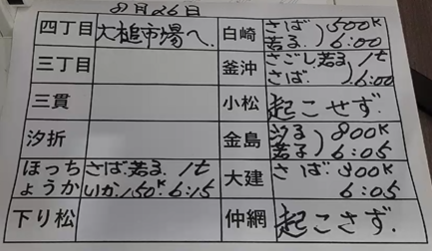 8月26日
四丁目 大槌市場へ. 白崎 さば. 若子. ) 500K 6:00
三丁目 釜沖 さごし若子. 1t さば. ) 6:00
三貫 小松 起こせず.
汐折 金島 若子 ) 800K 6:05
ほっちょうか さば. 若子. 1t いか. 150K 6:15 大建 さば. 300K 6:05
下り松 仲網 起こさず.